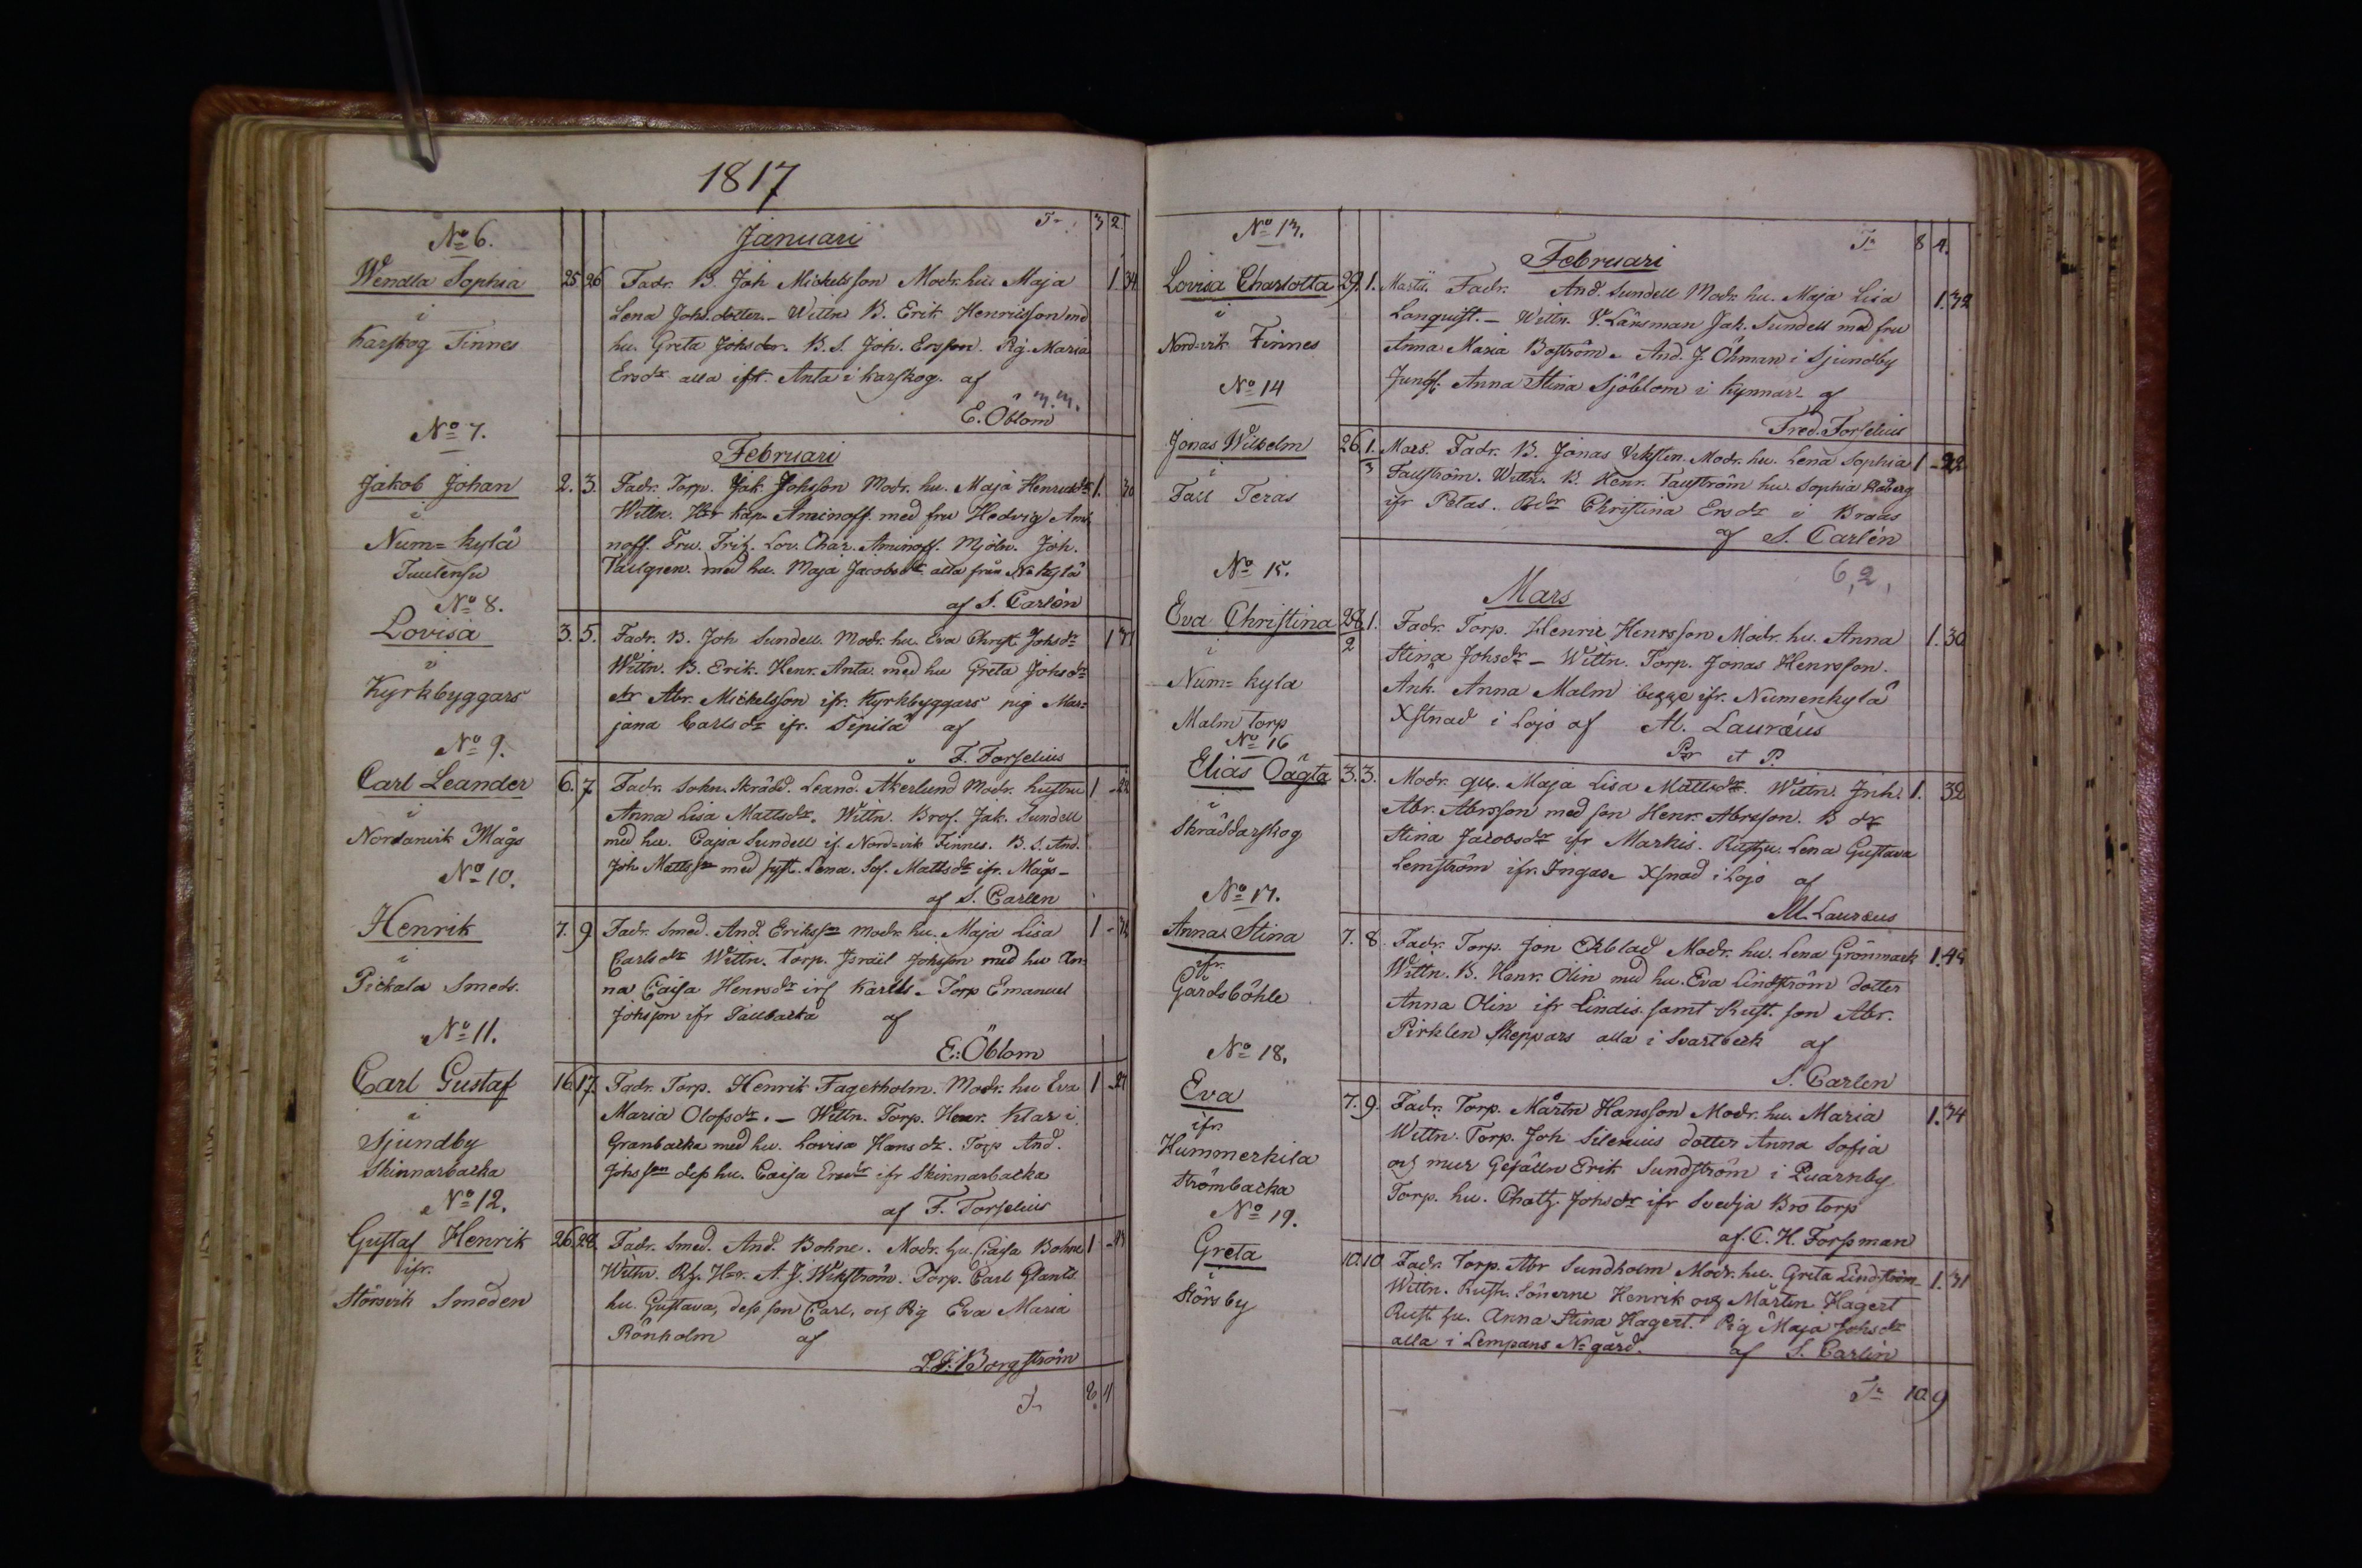 1817
Tr. 3 2
Januari
No 6.
Wendla Sophia 25. 26 Fadr. B. Joh Mickelsson Modr. hu. Maja 1 34
i Lena Johs.dotter. – Wittn B. Erik Henriksson md
Karskog Finnes hu. Greta Johsdr. B. S. Joh. Ersson. Pig. Maria
Ersdr alla ifr. Anta i Karskog. af
E. Öblom
No 7.
Februari
Jakob Johan 2. 3. Fadr. Torp. Jak Johsson Modr. hu. Maja Henricsdr 1. 30
i Wittn. Hrr Kap. Aminoff med fru Hedvig Ami
Num= kylä noff. Frw. Friz. Lov. Char. Aminoff. Mjöln. Joh.
Tuulensu Tallgren. med hu. Maja Jacobsdr alla från N=kylä
No 8. af S. Carlén
Lovisa 3. 5. Fadr. B. Joh Sundell. Modr. hu Eva Christ. Johsdr 1
i Wittn. B. Erik. Henr. Anta. med hu Greta Johsdr
Kyrkbyggars dr Abr. Mickelsson ifr. Kyrkbyggars pig Mar=
jana Carlsdr ifr. Sipilä af
No 9. F. Forselius
Carl Leander 6. 7 Fadr. Sohn. Skrädd. Leand. Akerlund Modr. hustru 1
i Anna Lisa Mattsdr. Wittn. Brof. Jak. Sundell
Nordanvik Mågs med hu. Cajsa Sundell if. Nord=vik Finnes. B. S. And.
No 10. Joh Mattsson med syst. Lena. Sof. Mattsdr ifr. Mågs –
af S. Carlen
Henrik 7. 9 Fadr. Smed. And. Eriksson modr. hu. Maja Lisa 1
i Carlsdr Wittn. Torp. Israel Johsson med hu An
Pickala Smeds. na Cajsa Henrsdr Karlls – Torp Emanuel
Johsson ifr Tallbacka af
No 11. E: Öblom
Carl Gustaf 16. 17. Fadr. Torp. Henrik Fagerholm. Modr. hu Eva 1
i Maria Olofsdr. – Wittn. Torp. Henr. Klar i
Sjundby Granbacka med hu. Lovisa Hansdr. Torp And.
Skinnarbacka Johsson dess hu. Caisa Ersdr ifr Skinnarbacka
No 12. af F. Forselius
Gustaf Henrik 26. 28. Fadr. Smed. And. Bohne. Modr. hu. Cajsa Bohne 1
ifr. Wittn. Hrr. A. J. Wikström. Torp. Carl Glants
Störsvik Smeden hu. Gustava, dess son Carl, och Pig Eva Maria
Rönholm af
Borgström
Tr 8 4
No 13. Tr 8 4.
Februari
Lovisa Charlotta 29. 1. Martii. Fadr. And. Sundell Modr. hu. Maja Lisa 1. 32
i Lonquist. – Wittn. V. Länsman Jak. Sundell med fru
Nord=vik Finnes Anna Maria Boström. And. J. Öhman i Sjundby
No 14 Jungf. Anna Stina Sjöblom i Kynnar= af
Fred. Forselius
Jonas Wilhelm 26 1. 3 Mars. Fadr. B. Jonas Modr. hu. Lena Sophia 1
i Fallström. Wittn. B. Henr. Fallström hu. Sophia Råberg
Fall Teras ifr Petas. Christina Ersdr i Braas
af S. Carlén
6,2,
No 15.
Mars
Eva Christina 28. 2 1. Fadr. Torp. Henric Henrsson Modr. hu. Anna 1. 30
i Stina Johsdr – Wittn. Torp. Jonas Henrsson.
Num= kyla Ank. Anna Malm begge ifr. Numenkylä
Malm Torp Xstnad i Lojo af M. Lauræus
No 16 Pr et P.
Elias Oägta 3. 3. Modr. qw. Maja Lisa Mattsdr. Wittn. Inh. 1. 32
i Abr. Abrsson med son Henr. Abrsson. B dr
Skräddarskog Stina Jacobsdr ifr Markis. Lena Gustava
Lemström ifr. Ingas. Xsnad i Lojo af
No 17. M. Lauræus
Anna Stina 7. 8. Fadr. Torp. Jon Ekblad Modr. hu. Lena Grönmark 1.
ifr. Wittn. B. Henr. Olin med hu. Eva Lindström dotter
Gårdsböhle Anna Olin ifr Lindis. samt Rust. son Abr.
Pirklen Skeppars alla i Svartbeck af
No 18. S. Carlen
Eva 7. 9. Fadr. Torp. Mårtn Hansson Modr. hu. Maria 1. 34
ifr. Wittn. Torp. Joh Silenius dotter Anna Sofia
Hummerkila och mur Gesälln Erik Sundström i Quarnby
Strömbacka Torp. hu. Johsdr ifr Svedja Bro torp
No 19. af. C. H. Forssman
Greta 10. 10 Fadr. Torp. Abr Sundholm Modr. hu. Greta Lindström 1. 31
i Wittn. Rusth. Sönerne Henrik och Mårten Hagert
Störsby Rust hu. Anna Stina Hagert. Pig Maja Johsdr
alla i Lempans N=gård. af S. Carlén
Tr 10 9